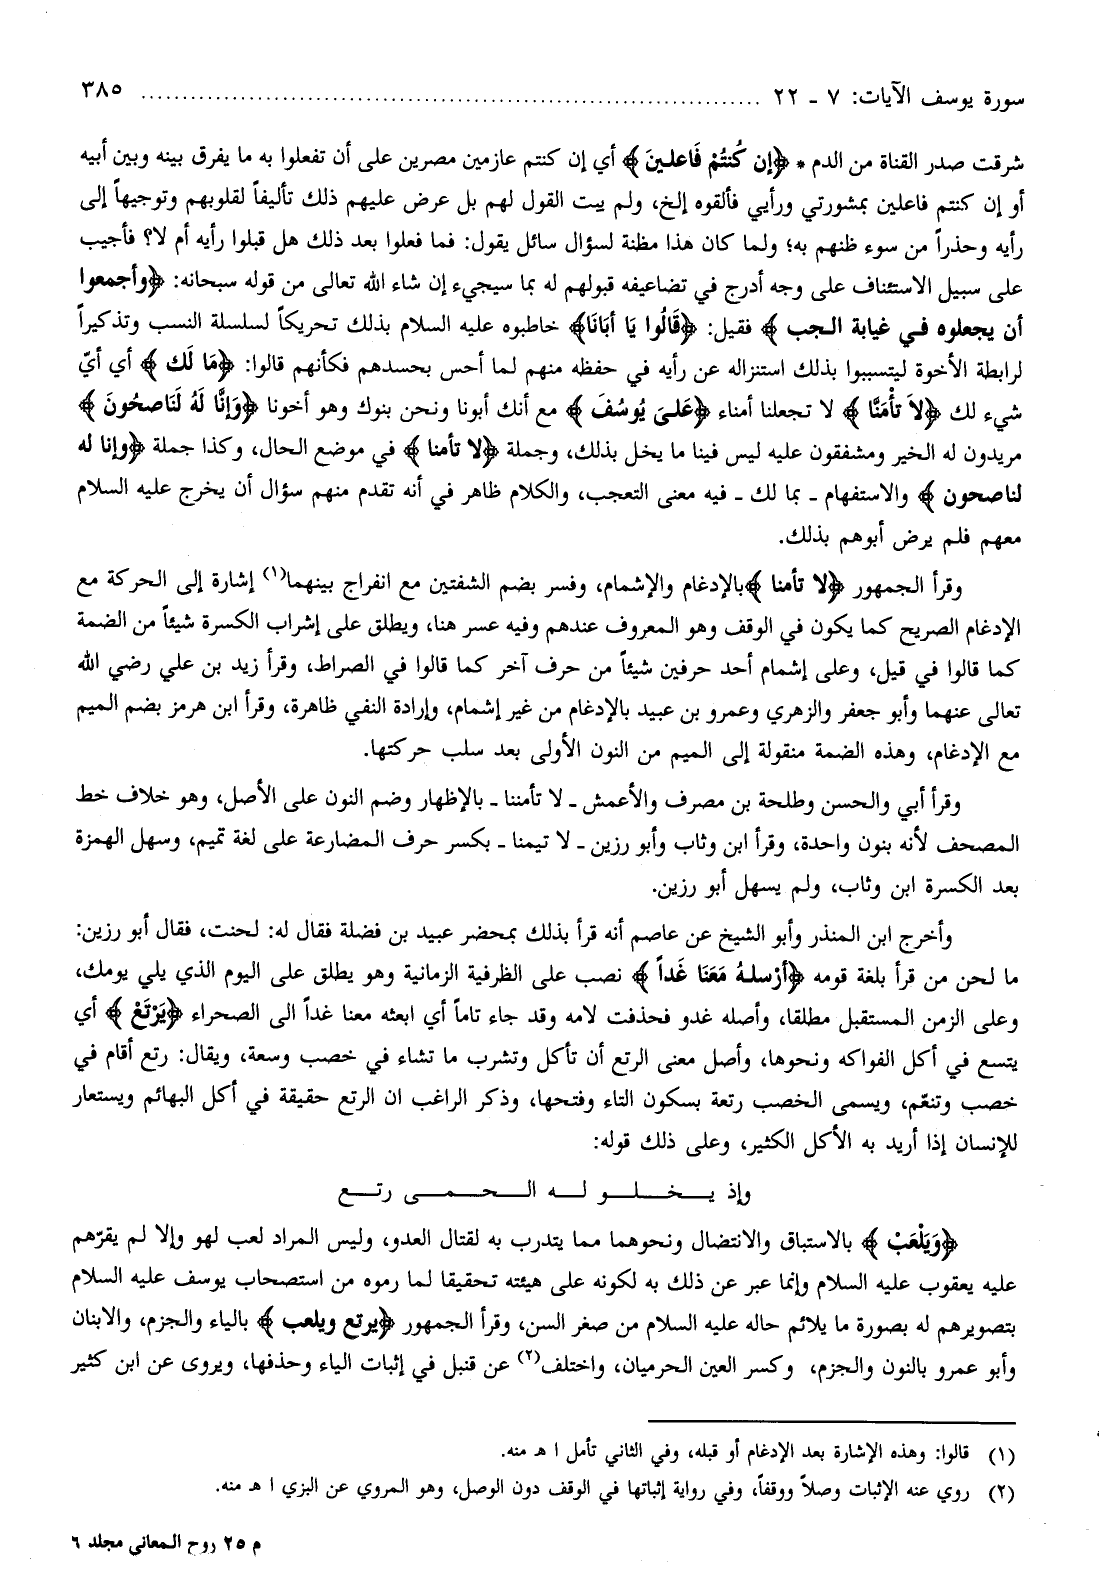 سورة يوسف الآيات: ٧ ـ ٢٢ ........................................................................... ٣٨٥
شرقت صدر القناة من الدم * ﴿إن كُنتُمْ فَاعلـينَ﴾ أي إن كنتم عازمين مصرين على أن تفعلوا به ما يفرق بينه وبين أبيه
أو إن كنتم فاعلين بمشورتي ورأيي فألقوه إلخ، ولم يبت القول لهم بل عرض عليهم ذلك تأليفاً لقلوبهم وتوجيهاً إلى
رأيه وحذراً من سوء ظنهم به؛ ولما كان هذا مظنة لسؤال سائل يقول: فما فعلوا بعد ذلك هل قبلوا رأيه أم لا؟ فأجيب
على سبيل الاستئناف على وجه أدرج في تضاعيفه قبولهم له بما سيجيء إن شاء الله تعالى من قوله سبحانه: ﴿وأجمعوا
أن يجعلوه فـي غيابة الـجب﴾ فقيل: ﴿قَالُوا يَا أبَانَا﴾ خاطبوه عليه السلام بذلك تحريكاً لسلسلة النسب وتذكيراً
لرابطة الأخوة ليتسببوا بذلك استنزاله عن رأيه في حفظه منهم لما أحس بحسدهم فكأنهم قالوا: ﴿مَا لَك﴾ أي أيّ
شيء لك ﴿لاَ تأْمَنَّا﴾ لا تجعلنا أمناء ﴿عَلىَ يُوسُفَ﴾ مع أنك أبونا ونحن بنوك وهو أخونا ﴿وَإنَّا لَهُ لَنَاصحُونَ﴾
مريدون له الخير ومشفقون عليه ليس فينا ما يخل بذلك، وجملة ﴿لا تأمنا﴾ في موضع الحال، وكذا جملة ﴿وإنا له
لناصحون﴾ والاستفهام ـ بما لك ـ فيه معنى التعجب، والكلام ظاهر في أنه تقدم منهم سؤال أن يخرج عليه السلام
معهم فلم يرض أبوهم بذلك.
وقرأ الجمهور ﴿لا تأمنا﴾بالإدغام والإشمام، وفسر بضم الشفتين مع انفراج بينهما(١) إشارة إلى الحركة مع
الإدغام الصريح كما يكون في الوقف وهو المعروف عندهم وفيه عسر هنا، ويطلق على إشراب الكسرة شيئاً من الضمة
كما قالوا في قيل، وعلى إشمام أحد حرفين شيئاً من حرف آخر كما قالوا في الصراط، وقرأ زيد بن علي رضي الله
تعالى عنهما وأبو جعفر والزهري وعمرو بن عبيد بالإدغام من غير إشمام، وإرادة النفي ظاهرة، وقرأ ابن هرمز بضم الميم
مع الإدغام، وهذه الضمة منقولة إلى الميم من النون الأولى بعد سلب حركتها.
وقرأ أبي والحسن وطلحة بن مصرف والأعمش ـ لا تأمننا ـ بالإظهار وضم النون على الأصل، وهو خلاف خط
المصحف لأنه بنون واحدة، وقرأ ابن وثاب وأبو رزين ـ لا تيمنا ـ بكسر حرف المضارعة على لغة تميم، وسهل الهمزة
بعد الكسرة ابن وثاب، ولم يسهل أبو رزين.
وأخرج ابن المنذر وأبو الشيخ عن عاصم أنه قرأ بذلك بمحضر عبيد بن فضلة فقال له: لحنت، فقال أبو رزين:
ما لحن من قرأ بلغة قومه ﴿أرْسلـهُ مَعَنَا غَداً﴾ نصب على الظرفية الزمانية وهو يطلق على اليوم الذي يلي يومك،
وعلى الزمن المستقبل مطلقا، وأصله غدو فحذفت لامه وقد جاء تاماً أي ابعثه معنا غداً الى الصحراء ﴿يَرْتَعْ﴾ أي
يتسع في أكل الفواكه ونحوها، وأصل معنى الرتع أن تأكل وتشرب ما تشاء في خصب وسعة، ويقال: رتع أقام في
خصب وتنعّم، ويسمى الخصب رتعة بسكون التاء وفتحها، وذكر الراغب ان الرتع حقيقة في أكل البهائم ويستعار
للإنسان إذا أريد به الأكل الكثير، وعلى ذلك قوله:
وإذ يـخـلـو لـه الـحـمـى رتـع
﴿وَيَلْعَبْ﴾ بالاستباق والانتضال ونحوهما مما يتدرب به لقتال العدو، وليس المراد لعب لهو وإلا لم يقرّهم
عليه يعقوب عليه السلام وإنما عبر عن ذلك به لكونه على هيئته تحقيقا لما رموه من استصحاب يوسف عليه السلام
بتصويرهم له بصورة ما يلائم حاله عليه السلام من صغر السن، وقرأ الجمهور ﴿يرتع ويلعب﴾ بالياء والجزم، والابنان
وأبو عمرو بالنون والجزم، وكسر العين الحرميان، واختلف(٢) عن قنبل في إثبات الياء وحذفها، ويروى عن ابن كثير
(١) قالوا: وهذه الإشارة بعد الإدغام أو قبله، وفي الثاني تأمل ا هـ منه.
(٢) روي عنه الإثبات وصلاً ووقفاً، وفي رواية إثباتها في الوقف دون الوصل، وهو المروي عن البزي ا هـ منه.
م ٢٥ روح الـمعاني مجلد ٦